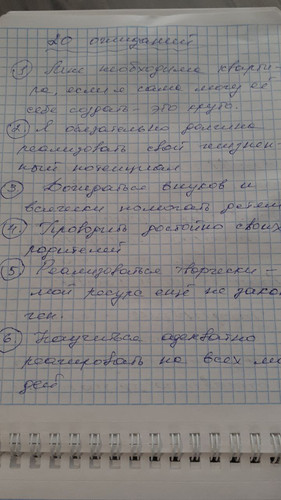 20 ожиданий
1 Мне необходима кварти-
ра, если я сама могу её
себе создать – это круто.
2. Я обязательно должна
реализовать свой жизнен
ный потенциал
3 Дождаться внуков и
всячески помогать детям
4. Проводить достойно своих
родителей
5 Реализоваться творчески –
мой ресурс ещё не закон
чен.
6. Научиться адекватно
реагировать на всех лю
дей